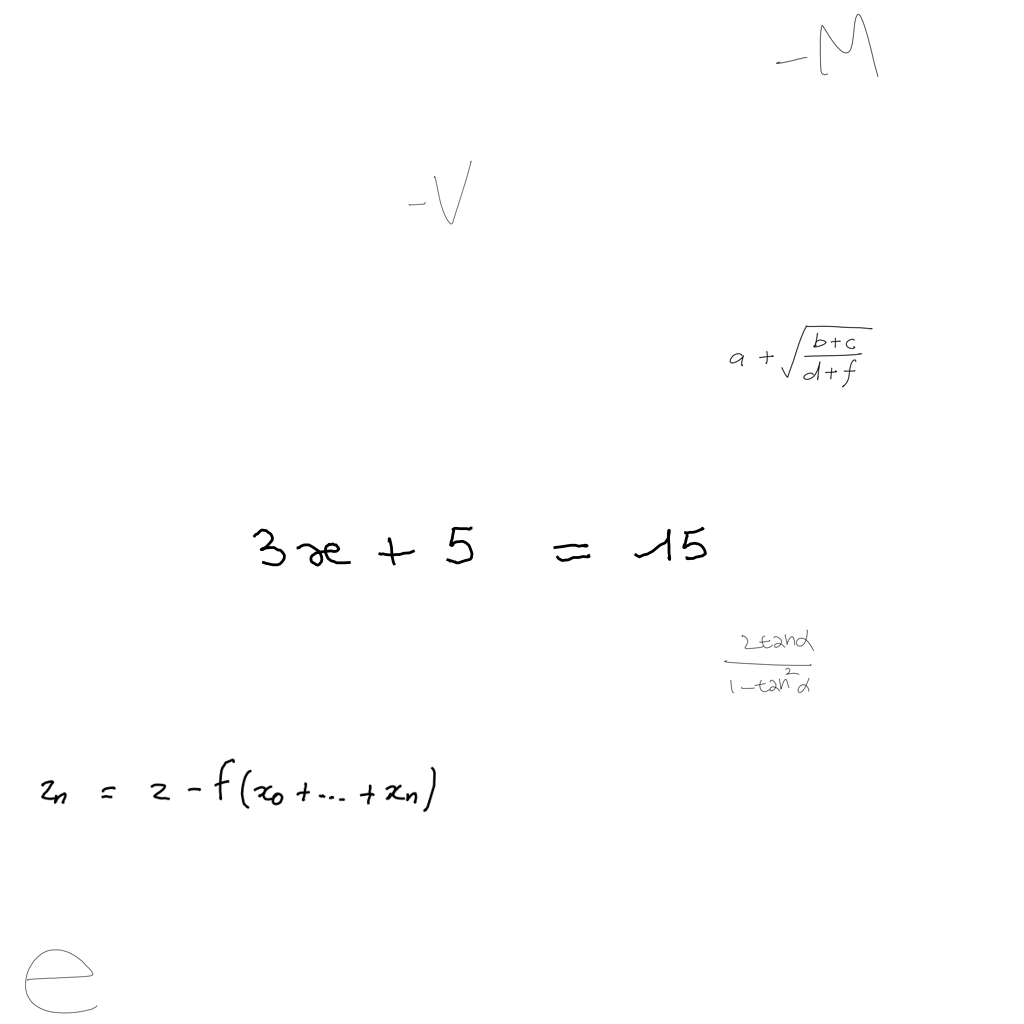 -M
-V
a + \sqrt{\frac{b+c}{d+f}}
3x + 5 = 15
\frac{2\tan\alpha}{1-\tan^2\alpha}
z_n = z - f(x_0 + ... + x_n)
e